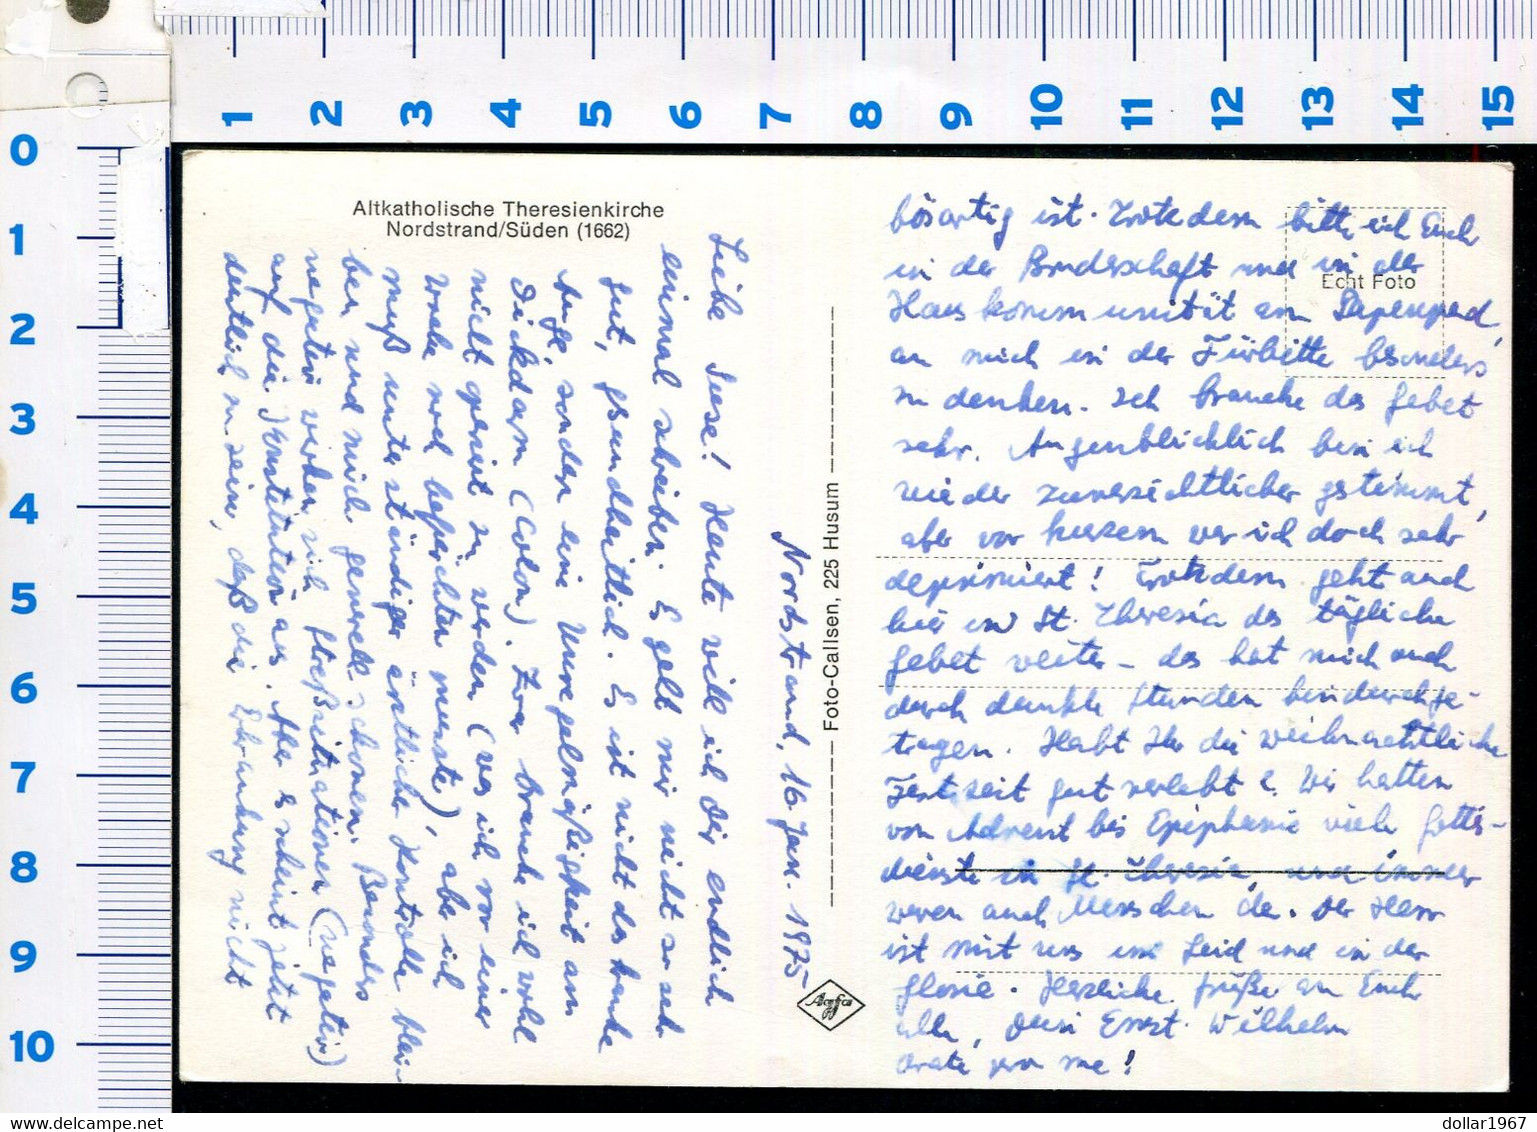 Altkatholische Theresienkirche
Nordstrand/Süden (1662)
Foto-Callsen, 225 Husum
Echt Foto
Agfa
Nordstrand, 16. Jan. 1975
Liebe Iese! Heute will ich dir endlich
einmal schreiben. Es geht mir nicht so sehr
gut, gesundheitlich. Es ist nicht das kranke
Auge, sondern eine Unregelmäßigkeit am
Dickdarm (Colon). Zwar brauche ich wohl
nicht operiert zu werden (was ich vor einer
Woche noch befürchten musste), aber ich
muß unter ständiger ärztlicher Kontrolle blei-
ben und mich generell schonen. Besonders
negativ wirken sich Streßsituationen (negativ)
auf die Konstitution aus. Aber es scheint jetzt
deutlich zu sein, daß die Erkrankung nicht
bösartig ist. Trotzdem bitte ich Euch
in der Bruderschaft und in der
Hauskommunität am Papenpad,
an mich in der Fürbitte besonders
zu denken. Ich brauche das Gebet
sehr. Augenblicklich bin ich
wieder zuversichtlicher gestimmt,
aber vor kurzem war ich doch sehr
deprimiert! Trotzdem geht auch
hier in St. Theresia das tägliche
Gebet weiter - das hat mich auch
durch dunkle Stunden hindurchge-
tragen. Habt Ihr die weihnachtliche
Festzeit gut verlebt? Wir hatten
von Advent bis Epiphanie viele Gottes-
dienste in St. Theresia, und immer
waren auch Menschen da. Der Herr
ist mit uns im Leid und in der
Glorie. Herzliche Grüße an Euch
alle, Dein Ernst-Wilhelm
Orate pro me!
1 2 3 4 5 6 7 8 9 10 11 12 13 14 15
0
1
2
3
4
5
6
7
8
9
10
www.delcampe.net
dollar1967